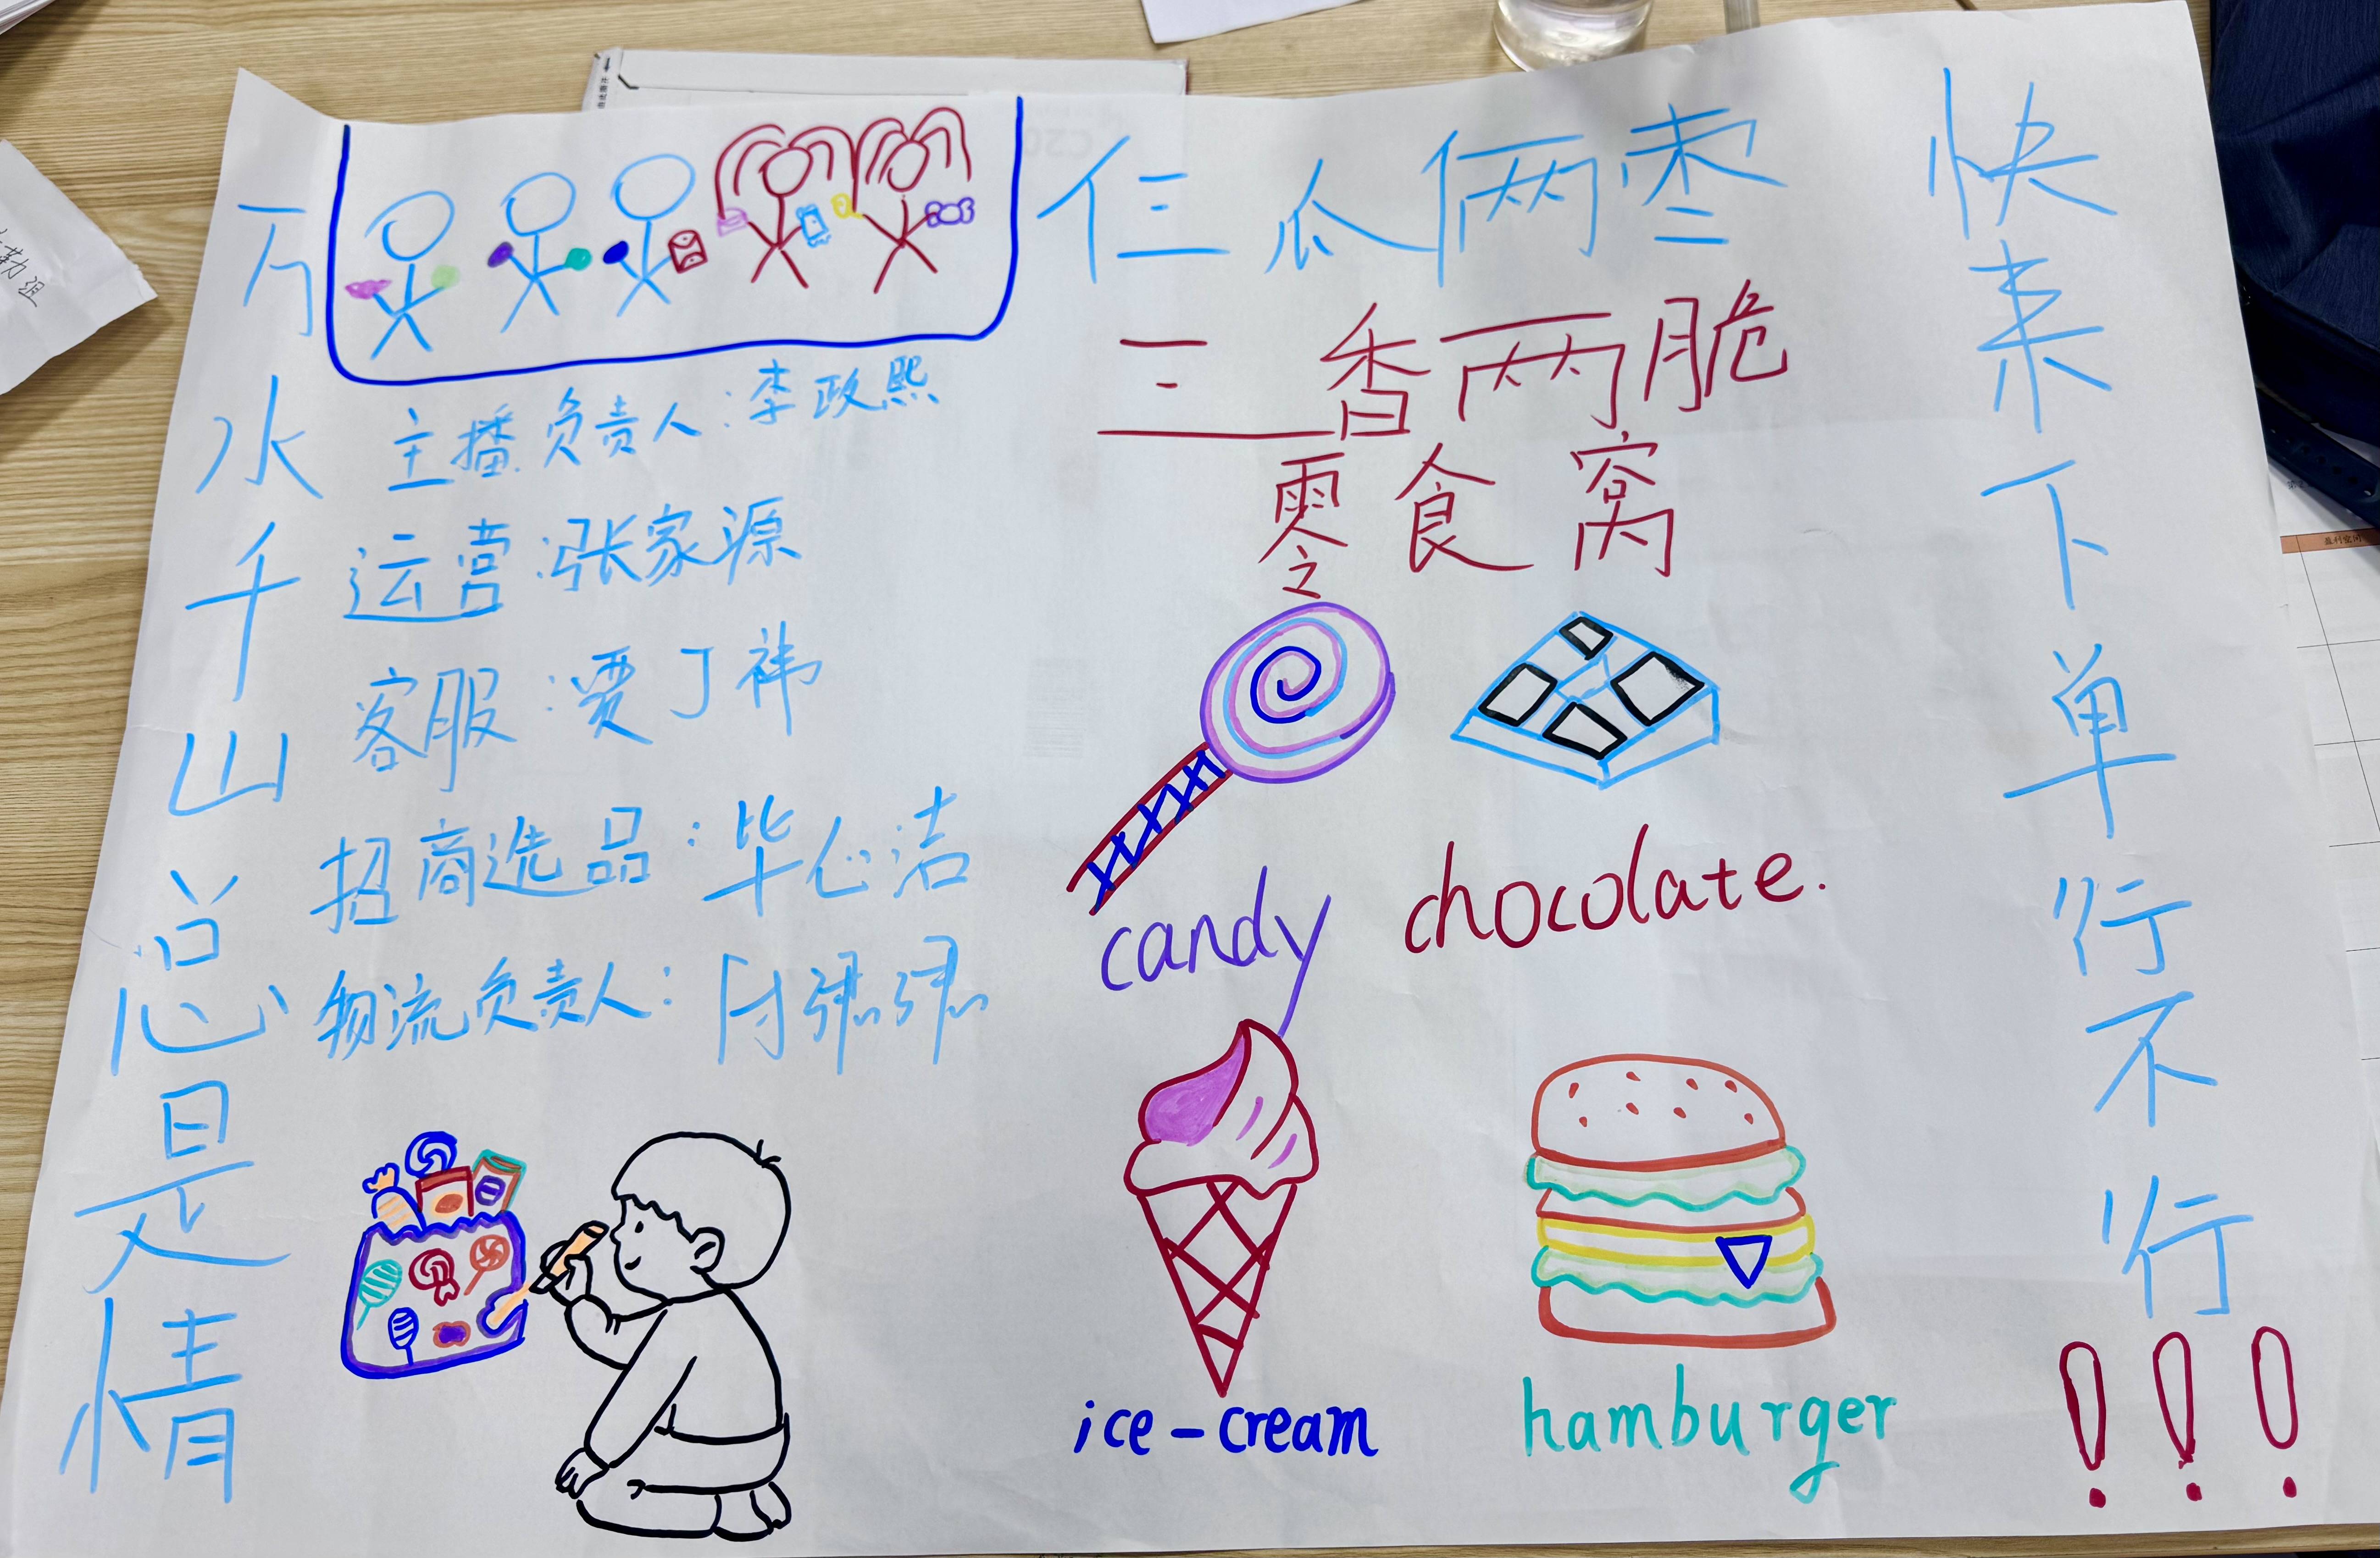 万水千山总是情
仨瓜俩枣
三香两脆
零食窝
主播负责人：李政熙
运营：张家源
客服：贾丁祎
招商选品：毕心洁
物流负责人：
candy
chocolate.
ice-cream
hamburger
快来下单行不行!!!